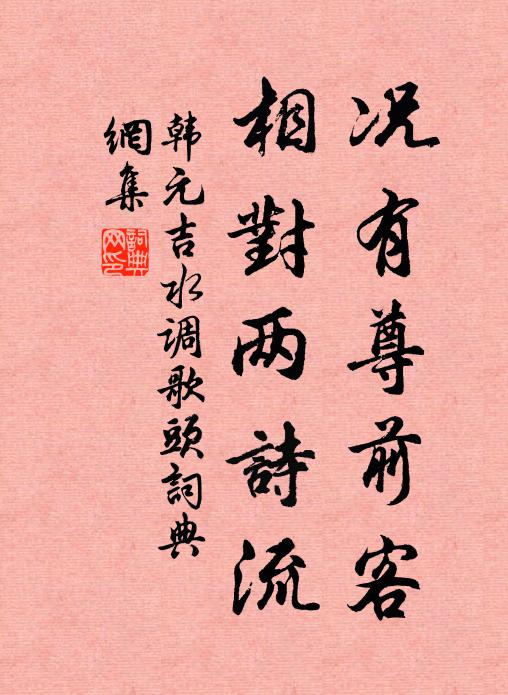 况有尊前客
相對两詩流
韩元吉水调歌頭詞典
網集
詞典
网印